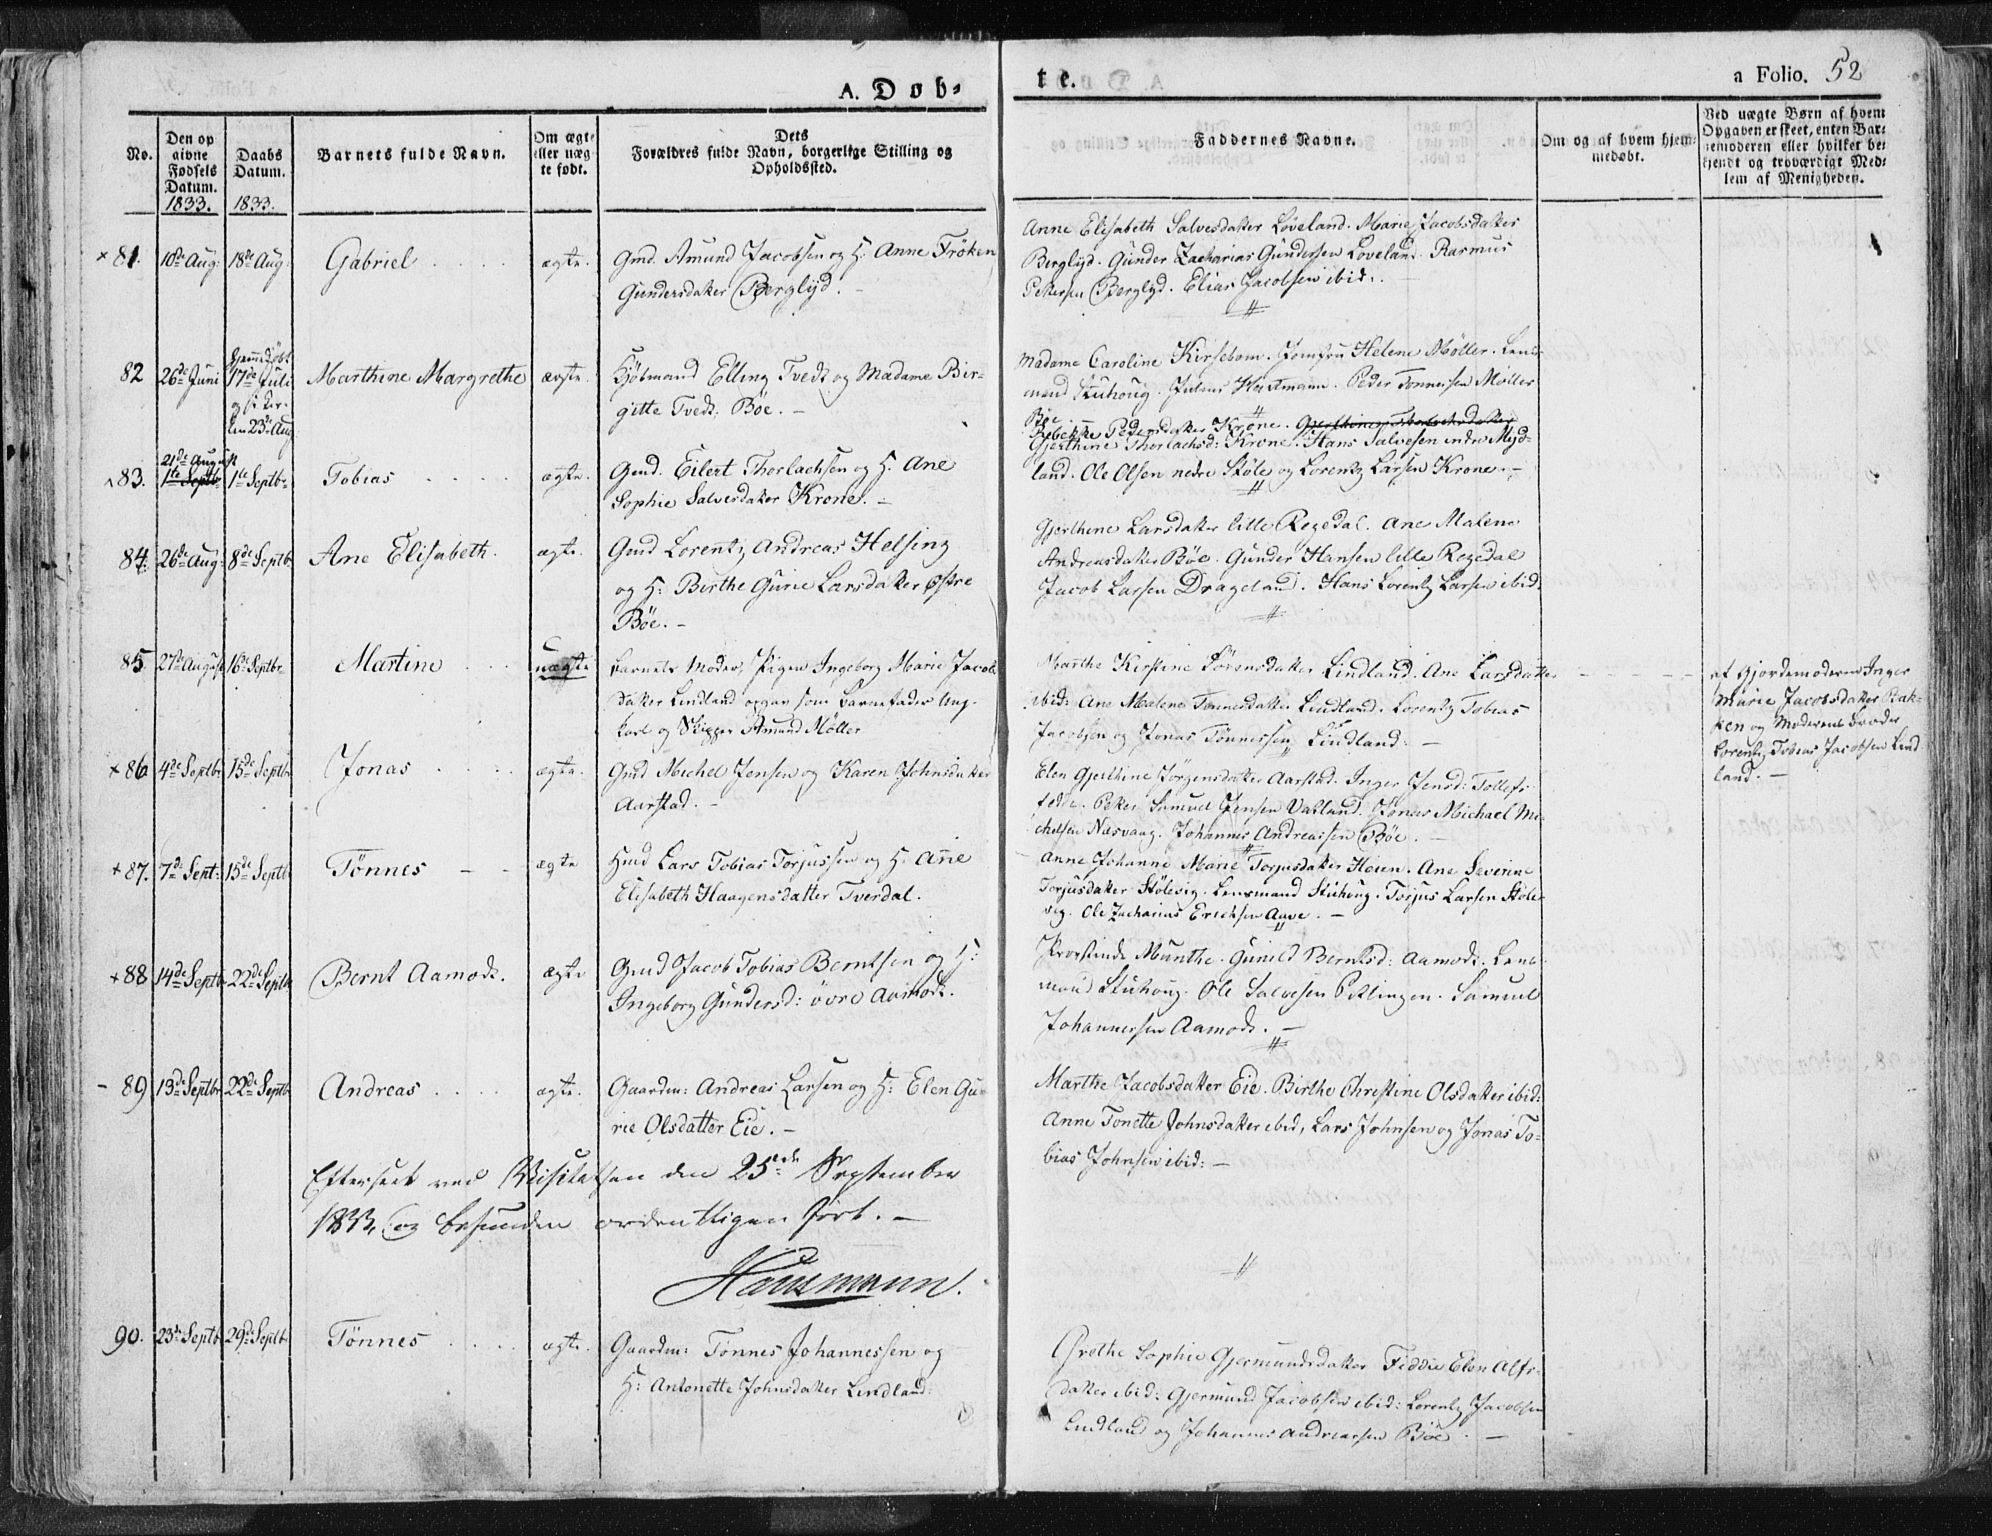 A. Døb-
te.
a Folio. 52
No.
Den op
givne
Fødsels
Datum.
1833.
Daabs
Datum.
1833.
Barnets fulde Navn.
Om ægte
eller uæg
te født.
Dets
Forældres fulde Navn, borgerlige Stilling og
Opholdssted.
Faddernes Navne.
Om og af hvem hjem-
medøbt.
Ved uægte Børn af hvem
Opgaven er skeet, enten Bar-
nemoderen eller hvilket be-
kjendt og troværdigt Med-
lem af Menigheden.
× 81. 10de Aug: 18de Aug. Gabriel ægte.
Gmd. Amund Jacobsen og H: Anne Frøken
Gundersdatter Berglyd. –
Anne Elisabeth Salvesdatter Løveland. Marie Jacobsdatter
Berglyd. Gunder Zacharias Gundersen Løveland. Rasmus
Pettersen Berglyd. Elias Jacobsen ibid:.
82 26de Juni Hjemmedøbt
17de Juli
og i Kir-
ken 23de Aug
Marthine Margrethe ægte.
Kjøbmand Elling Tvedt og Madame Bir-
gitte Tvedt. Bøe. –
Madame Caroline Kirsebom. Jomfru Helene Møller. Lens-
mand Stuhoug. Julius Hartmann. Peder Tønnessen Møller
Bøe
83. 21de August
1te Septbr 1te Septbr. Tobias ægte.
Gmd. Eilert Thorlachsen og H. Ane
Sophie Salvesdatter Krone. –
Rebekke Pedersdatter Krone. Gjerthine Thorlachsdatter
Gjerthine Thorlachsd: Krone. Hans Salvesen indre Myd-
land. Ole Olsen nedre Støle og Lorentz Larsen Krone. –
84. 26de Aug: 8de Septbr Ane Elisabeth. ægte.
Gmd Lorentz Andreas Helsing
og H: Birthe Gurie Larsdatter østre
Bøe. –
Gjerthine Larsdatter lille Regedal. Ane Malene
Andreasdatter Bøe. Gunder Hansen lille Regedal
Jacob Larsen Drageland. Hans Lorentz Larsen ibid:
85 27de August 16de Septbr. Martine uægte
Barnets Moder, Pigen Ingeborg Marie Jacobs
datter Lindland opgav som Barnefader Ung-
karl og Skipper Amund Møller
Marthe Kirstine Sørensdatter Lindland. Ane Larsdatter
ibid: Ane Malene Tønnesdatter Lindland. Lorentz Tobias
Jacobsen og Jonas Tønnessen Lindland: –
af Gjordemoderen Inger
Marie Jacobsdatter Bak-
ken og Moderens Broder
Lorentz Tobias Jacobsen Lind
land. –
× 86 4de Septbr. 15de Septbr Jonas ægte.
Gmd Michel Jensen og Karen Johnsdatter
Aarstad. –
Elen Gjerthine Jørgensdatter Aarstad. Inger Jensd: Tollefs
Petter Samuel Jensen Vatland. Jonas Michael Mi-
chelsen Næsvaag. Johannes Andreassen Bøe. –
+ 87. 7de Sept: 15de Septbr Tønnes – – ægte
Hmd Lars Tobias Torjussen og H: Ane
Elisabeth Haagensdatter Tverdal.
Anne Johanne Marie Torjusdatter Høien. Ane Severine
Torjusdatter Stølesvig. Lensmand Stuhoug. Torjus Larsen Støle-
vig. Ole Zacharias Erichsen Aave. –
+ 88 14de Septbr 22de Septbr Bernt Aamodt. ægte
Gmd Jacob Tobias Berntsen og H:
Ingeborg Gundersd: øvre Aamodt.
Provstinde Munthe. Gunild Berntsd: Aamodt. Lens-
mand Stuhoug. Ole Salvesen Pitlingen. Samuel
Johannessen Aamodt. –
– 89 13de Septbr 22de Septbr Andreas ægte.
Gaardm: Andreas Larsen og H: Elen Gu-
rie Olsdatter Eie. –
Marthe Jacobsdatter Eie. Birthe Christine Olsdatter ibid:
Anne Tonette Johnsdatter ibid, Lars Johnsen og Jonas To-
bias Johnsen ibid: –
Efterseet ved Visitatsen den 25de September
1833, og befunden ordentligen ført. –
Hausmann.
90. 23de Septbr 29de Septbr Tønnes ægte.
Gaardm: Tønnes Johannessen og
H: Antonette Johnsdatter Lindland:
Grethe Sophie Gjermundsdatter Fiddie Elen Alfs-
datter ibid: Gjermund Jacobsen ibid: Lorentz Jacobsen
Lindland og Johannes Andreassen Bøe. –